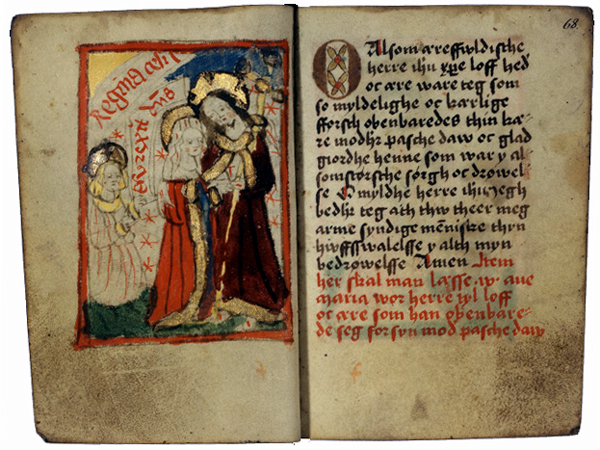 Regina celi
surexit dns
68.
O Alsom æreffwldisthe
herre ihu xpe loff hed
oc ære ware teg som
so myldelighe oc kærlige
fforsth obenbaredes thin kæ
re modhr pasche daw oc glad
giordhe henne som war y al
somstørsthe sorgh oc drowel
se O myldhe herre ihu jegh
bedhr teg ath thw theer meg
arme syndige mēniske thyn
hwffswalelsse y alth myn
bedrowelsse Amen Item
her skal man læsse .v. aue
maria wor herre tyl loff
oc ære som han obenbare
de seg for syn mod pasche daw